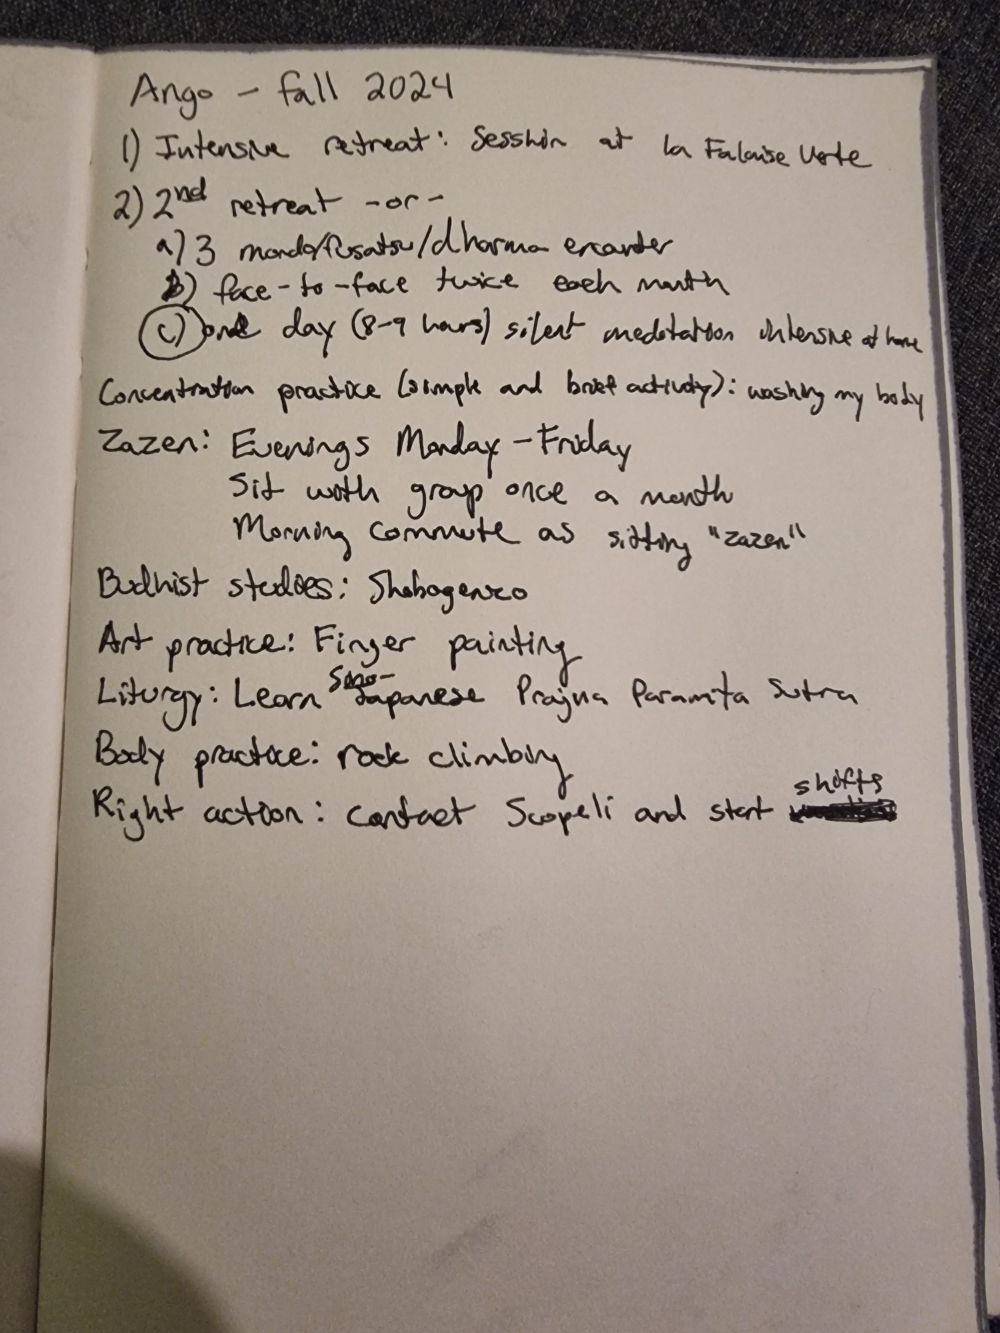 Ango - fall 2024
1) Intensive retreat: Sesshin at la Falaise Verte
2) 2nd retreat -or-
a) 3 mondo/fusatsu/dharma encounter
b) face-to-face twice each month
c) one day (8-9 hours) silent meditation intensive at home
Concentration practice (simple and brief activity): washing my body
Zazen: Evenings Monday - Friday
Sit with group once a month
Morning commute as sitting "zazen"
Budhist studies: Shobogenzo
Art practice: Finger painting
Liturgy: Learn Sino-Japanese Prajna Paramita Sutra
Body practice: rock climbing
Right action: contact Scopeli and start shifts